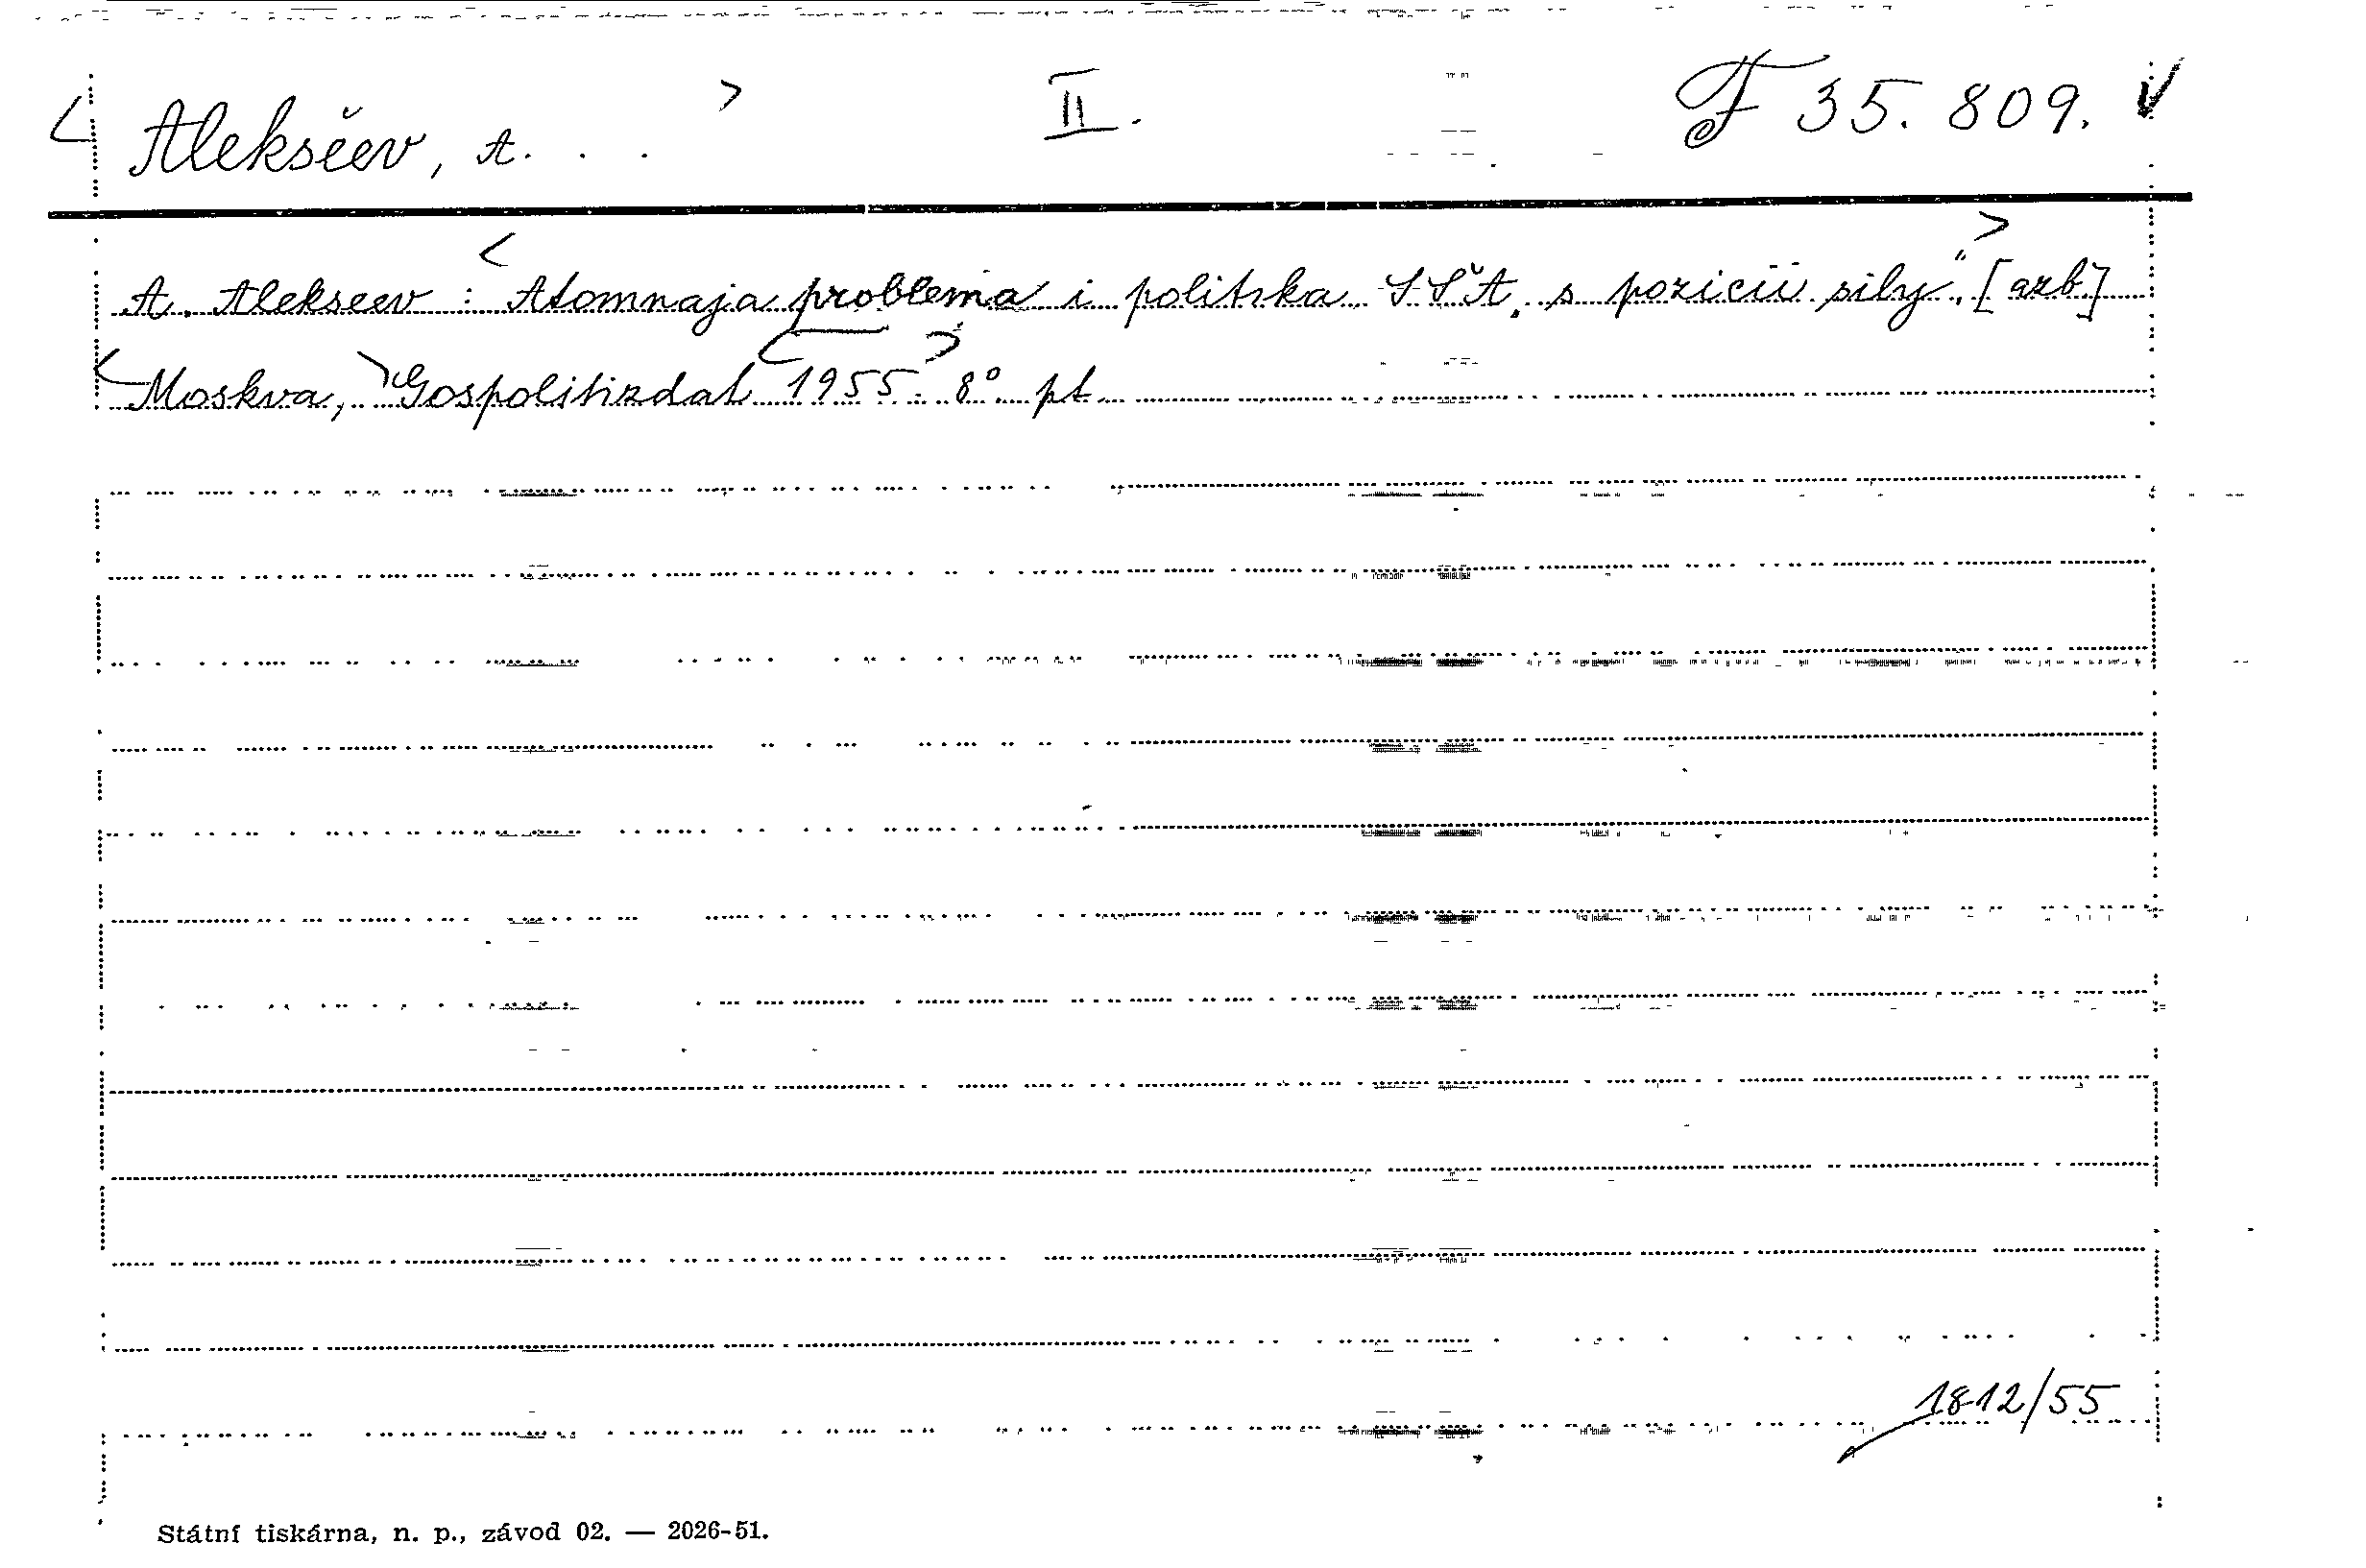 < Alekséev, A. . . > II. F 35.809. ✓
A. Alekseev : < Atomnaja problema i politika SŠA „s pozicii sily“. > [azb]
< Moskva, > Gospolitizdat < 1955. > 8° pt.
1812/55
Státní tiskárna, n. p., závod 02. — 2026-51.